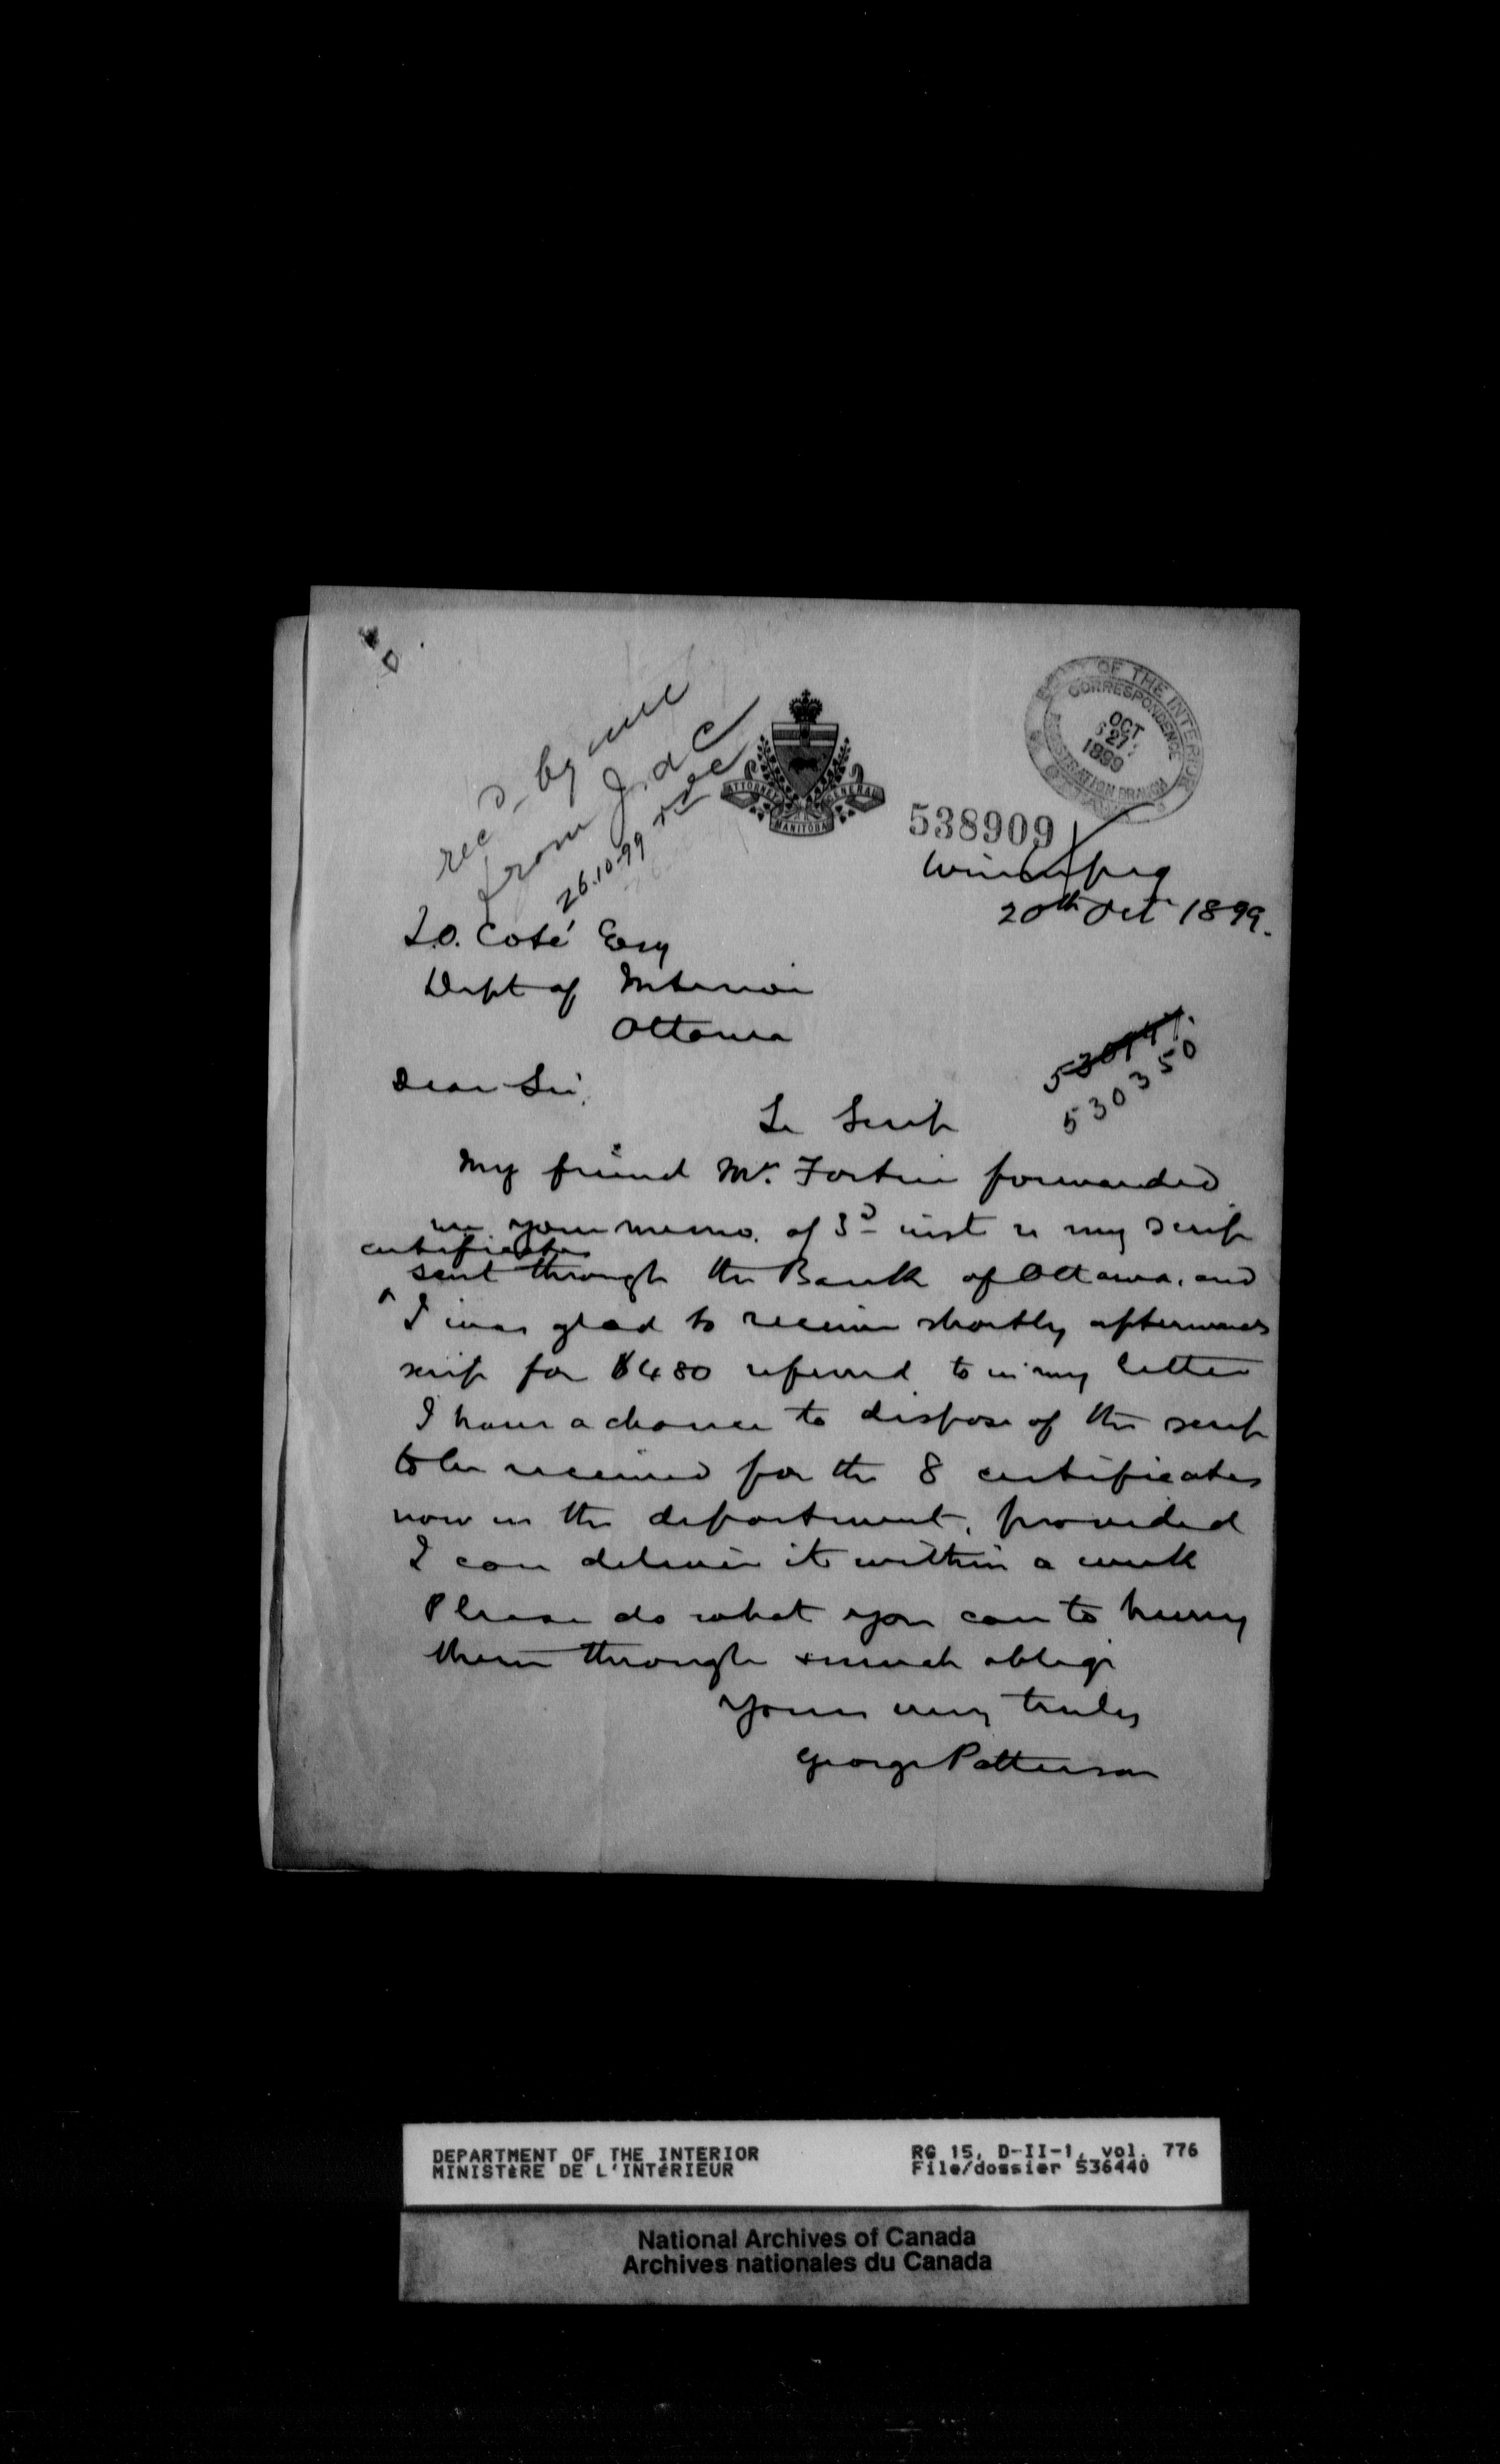 rec'd by me
from J. d C
26.10.99
ATTORNEY GENERAL
MANITOBA
OF THE INTERIOR
CORRESPONDENCE
OCT
27
1899
538909
Winnipeg
20th Oct 1899.
Coté Esq
Dept of Interior
Ottawa
530350
Dear Sir,
Scrip
My friend Mr. Fortin forwarded
me your memo. of 3d inst re my scrip
certificates
sent through the Bank of Ottawa, and
I was glad to receive shortly afterwards
scrip for $480 referred to in my letter
I have a chance to dispose of the scrip
to be received for the 8 certificates
now in the department, provided
I can deliver it within a week
Please do what you can to hurry
them through & much oblige
Yours very truly
George Patterson
DEPARTMENT OF THE INTERIOR
MINISTèRE DE L'INTéRIEUR
RG 15, D-II-1, vol. 776
File/dossier 536440
National Archives of Canada
Archives nationales du Canada